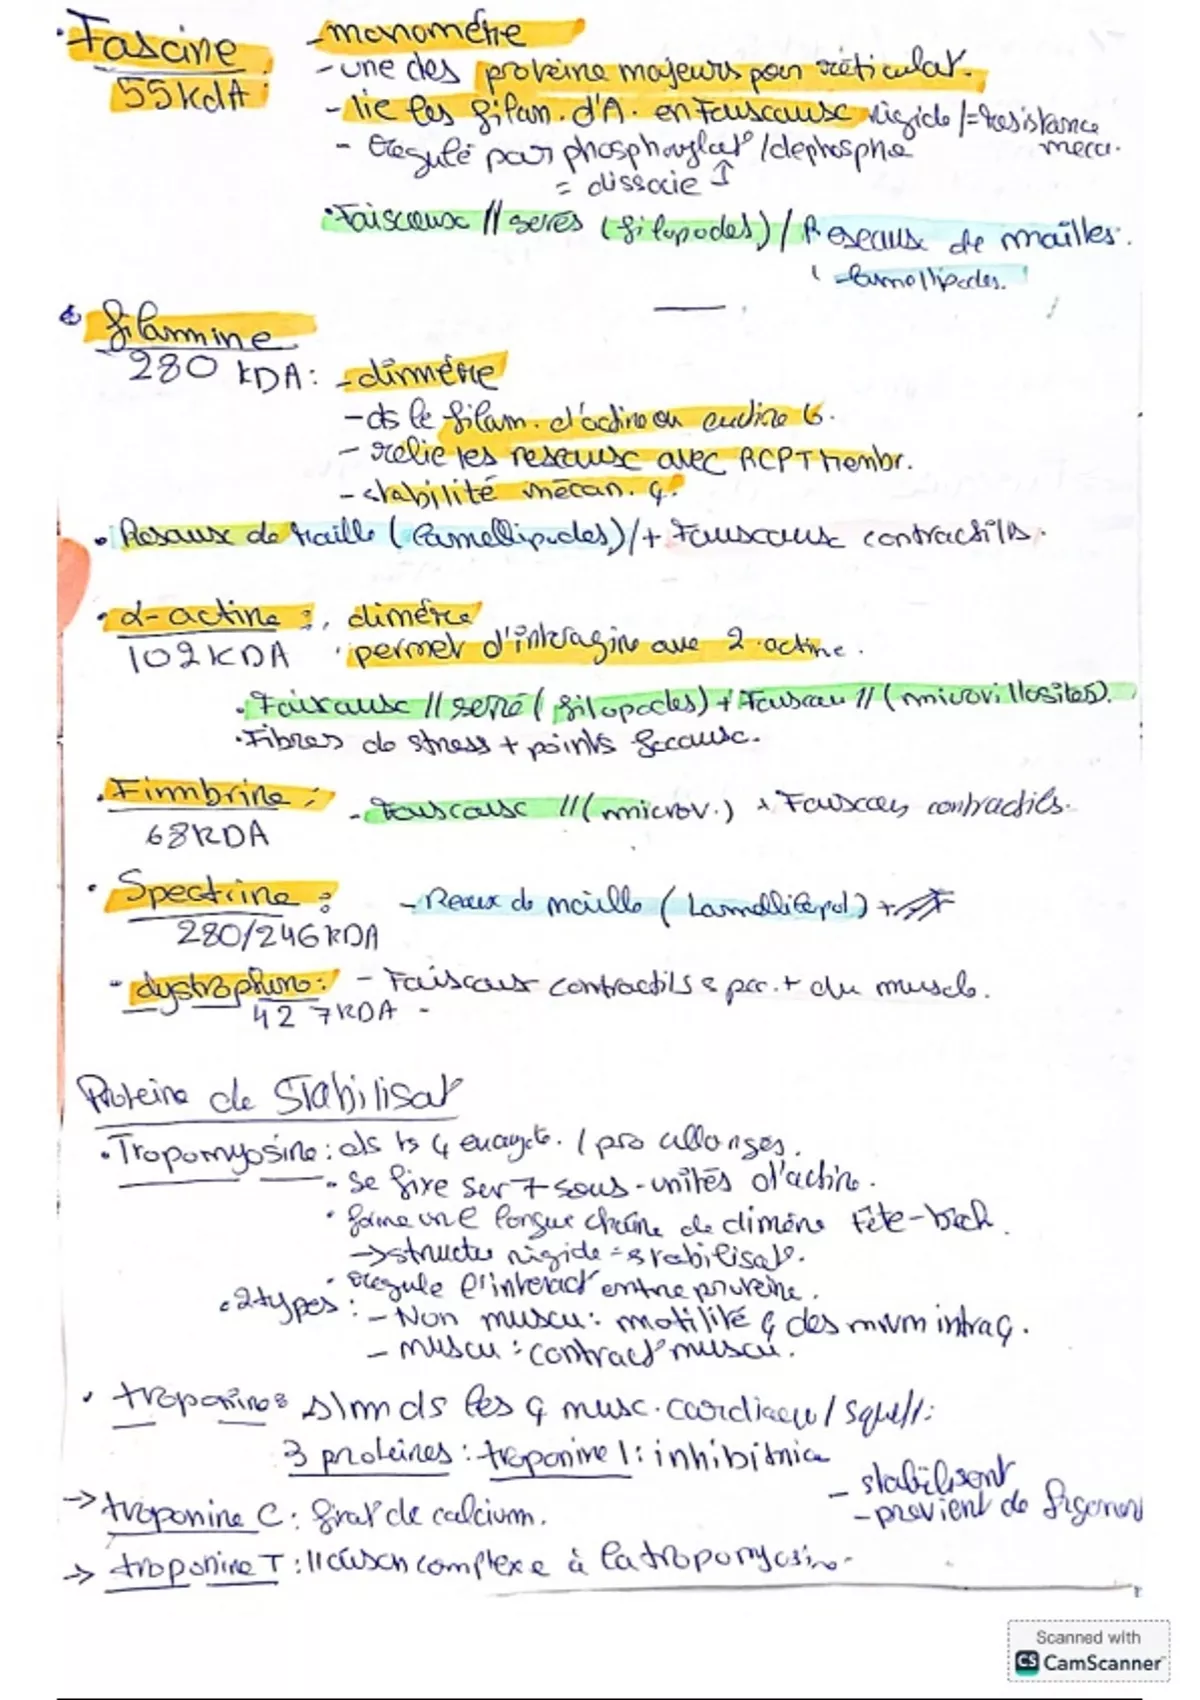 • Fascine
55 KdA
- monomére
- une des proteine majeurs pour réticulat°.
- lie les filam. d'A. en Fauscause rigide / = resistance meca.
- Regulé par phosphorylat° / dephospho
= dissocie ↑
• Faisceaux // serés (filopodes) / Reseaux de mailles.
- lamellipodes.
filammine
280 KDA : - dimmére
- ds le filam. d'actine ou
- relie les reseause avec RCPT membr.
- stabilité mécan. ç.
• Resaux de maille (lamellipodes) / + Fauscause contractills.
• α-actine : , dimére
102 KDA • permet d'interagire ave 2 actine.
• Faixause // serré (filopodes) + Fauscau // (microvillosités).
• Fibres de stress + points focause.
• Fimmbrine :
68KDA
- Fauscause // (microv.) + Fauscau contractils.
• Spectrine :
280/246 KDA
- Reaux de maille (Lamellipod) +
- dystrophine : - Faiscaux contractils + du muscle.
427KDA -
Proteine de Stabilisat°
• Tropomyosine : ds ts ç eucaryote. / pro allongés.
• Se fixe sur 7 sous-unités d'actine.
• forme une longue chaîne de dimére tête-bêch.
→ structure rigide = stabilisat°.
• Regule l'interact° entre proteine.
• 2 types : - Non muscu : motilité ç des mvm intraç.
- muscu : contract° muscu.
• troponine : slm ds les ç musc. cardiaque / squell :
3 protéines : troponine I : inhibitrice
- stabilisent
- previent de
→ troponine C : fixat° de calcium.
→ troponine T : liaison complexe à la tropomyosine.
Scanned with
CS CamScanner